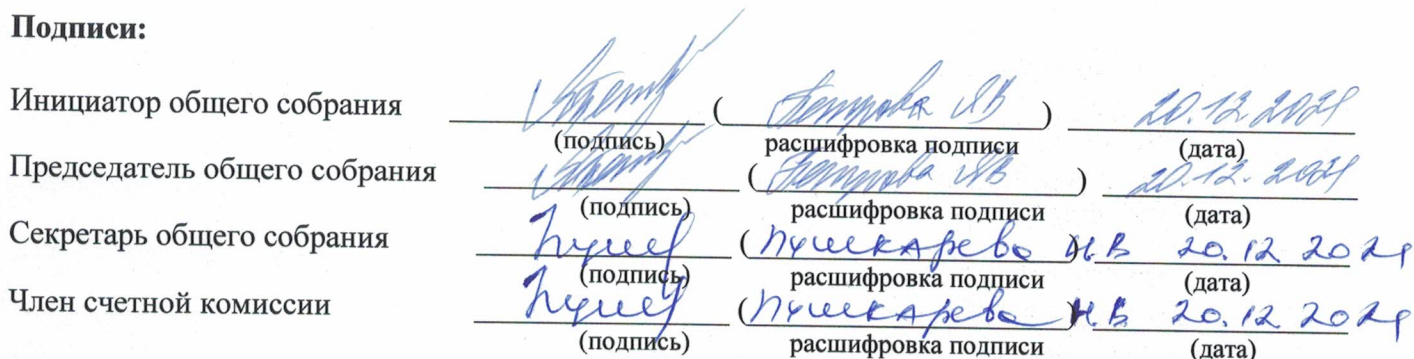 Подписи:
Инициатор общего собрания ( Петрова ЯВ ) 20.12.2021
(подпись) расшифровка подписи (дата)
Председатель общего собрания ( Петрова ЯВ ) 20.12.2021
(подпись) расшифровка подписи (дата)
Секретарь общего собрания ( Пушкарева Н.В ) 20.12 2021
(подпись) расшифровка подписи (дата)
Член счетной комиссии ( Пушкарева Н.В ) 20.12 2021
(подпись) расшифровка подписи (дата)